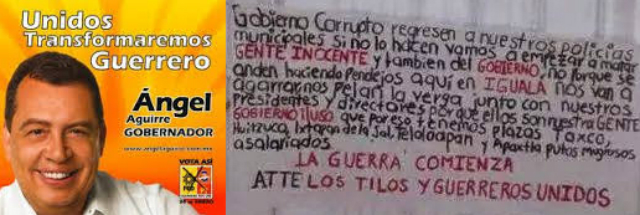 Unidos
Transformaremos
Guerrero
Ángel
Aguirre
GOBERNADOR
www.angelaguirre.com.mx
VOTA ASÍ
PRD
Gobierno Corrupto regresen a nuestros policias
municipales Si no lo hacen vamos a empezar a matar
GENTE INOCENTE y tambien del GOBIERNO, no porque se
anden haciendo Pendejos aquí en IGUALA nos van a
agarrarnos pelan la verga junto con nuestros
Presidentes y directores porque ellos son nuestra GENTE
GOBIERNO ILUSO que por eso tenemos plazas Taxco,
Huitzuco, Ixtapan de la Sal, Teloloapan y Apaxtla putos mugrosos
asalariados.
LA GUERRA COMIENZA
ATTE LOS TILOS Y GUERREROS UNIDOS